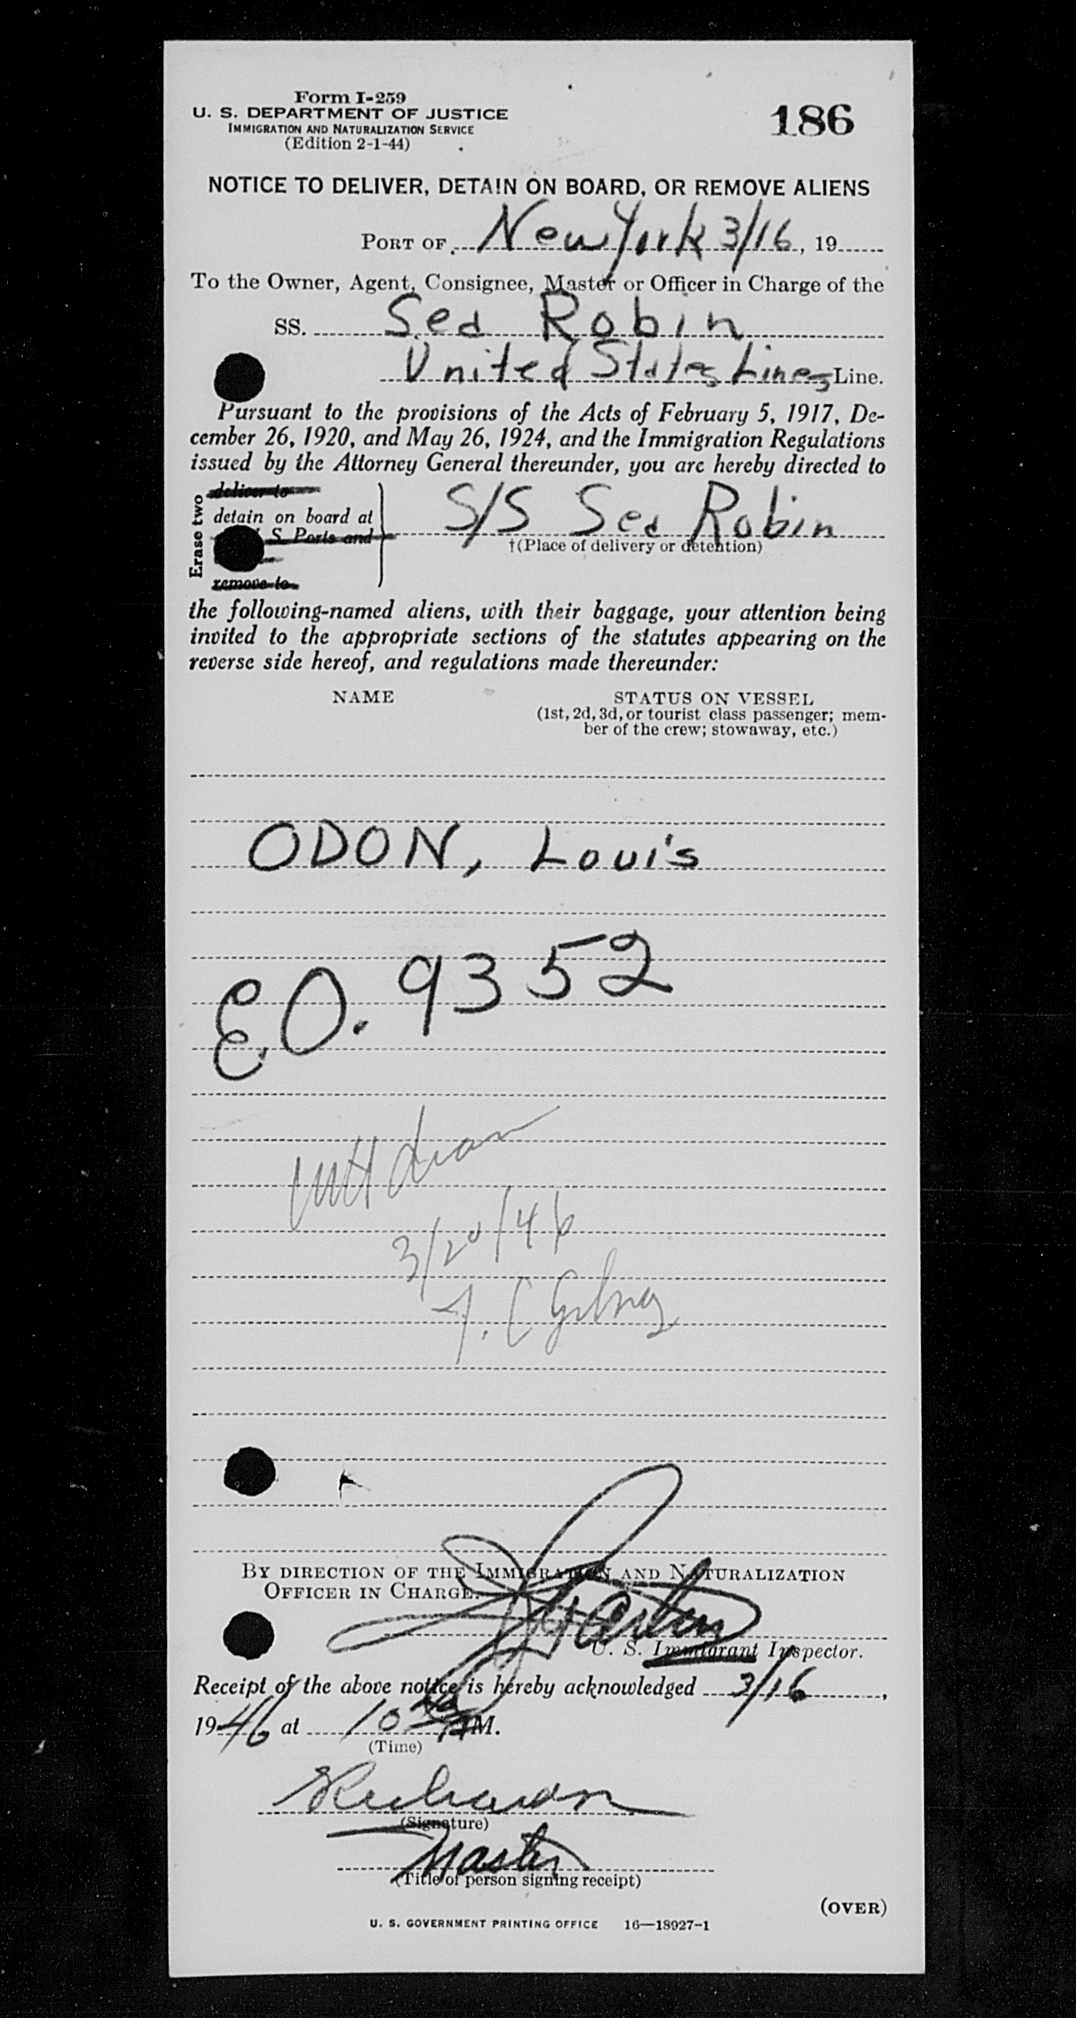 Form I-259
U. S. DEPARTMENT OF JUSTICE
IMMIGRATION AND NATURALIZATION SERVICE
(Edition 2-1-44)
186
NOTICE TO DELIVER, DETAIN ON BOARD, OR REMOVE ALIENS
PORT OF New York 3/16, 19
To the Owner, Agent, Consignee, Master or Officer in Charge of the
SS. Sea Robin
United States Lines Line.
Pursuant to the provisions of the Acts of February 5, 1917, De-
cember 26, 1920, and May 26, 1924, and the Immigration Regulations
issued by the Attorney General thereunder, you are hereby directed to
Erase two
deliver to
detain on board at
S. Ports and
remove to
S/S Sea Robin
†(Place of delivery or detention)
the following-named aliens, with their baggage, your attention being
invited to the appropriate sections of the statutes appearing on the
reverse side hereof, and regulations made thereunder:
NAME
STATUS ON VESSEL
(1st, 2d, 3d, or tourist class passenger; mem-
ber of the crew; stowaway, etc.)
ODON, Louis
E.O. 9352
3/20/46
BY DIRECTION OF THE IMMIGRATION AND NATURALIZATION
OFFICER IN CHARGE.
U. S. Immigrant Inspector.
Receipt of the above notice is hereby acknowledged 3/16,
1946 at 10 AM.
(Time)
(Signature)
Master
(Title of person signing receipt)
(OVER)
U. S. GOVERNMENT PRINTING OFFICE 16—18927-1